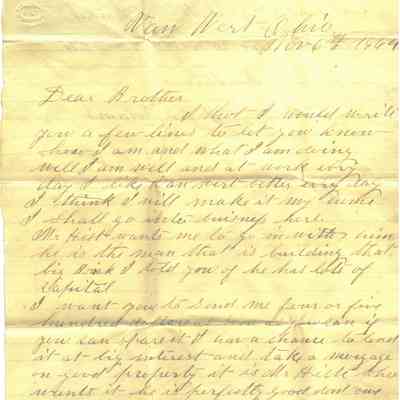 Van Wert Ohio
Nov 6th
Dear Brother
I thot I would write
you a few lines to let you know
how I am and what I am doing
will I am well and at work evry
day I like Van Wert better evry day
I think I will make it my home
I shall go into buisness here
Mr Hist wants me to go in with him
he is the man that is building that
big I told you of he has lots of
capital
I want you to send me four or five
hundred dollars if
you can spare it I hav a chance to lend
it at big interest and take a morgage
on good property it is Mr
wants it he is perfectly good dont